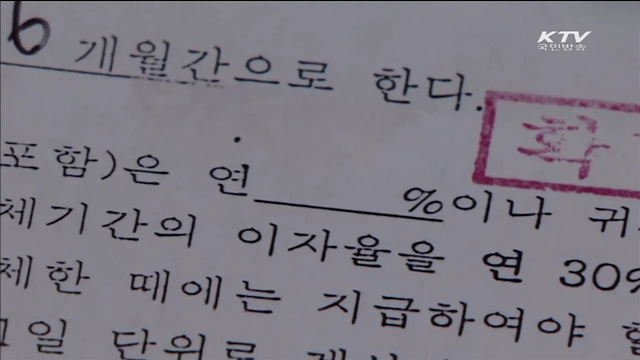 KTV
국민방송
6 개월간으로 한다.
화
포함)은 연 %이나 귀
체기간의 이자율을 연 30%
체한 때에는 지급하여야 할
1일 단위로 계산